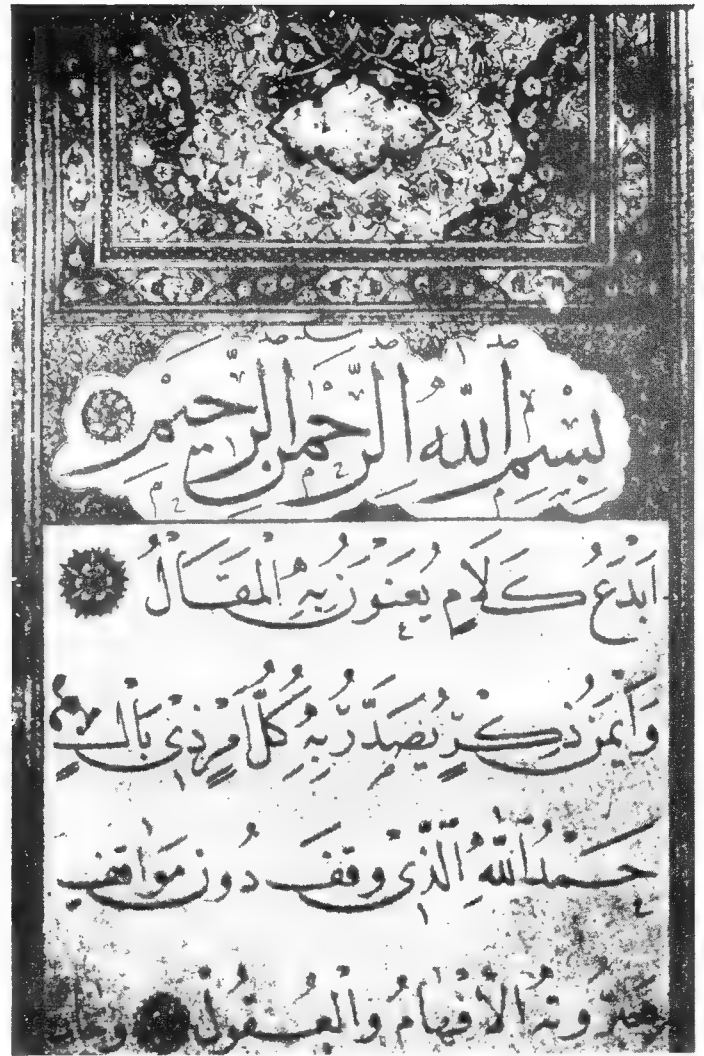 بِسْمِ اللَّهِ الرَّحْمٰنِ الرَّحِيْمِ
اَبْدَعُ كَلَامٍ يُعَنْوَنُ بِهِ الْمَقَالُ
وَاَيْمَنُ ذِكْرٍ يُصَدَّرُ بِهِ كُلُّ اَمْرٍ ذِيْ بَالٍ
حَمْدُ اللهِ الَّذِيْ وَقَفَ دُونَ مَوَاقِفِ
الْاَفْهَامُ وَالْعُقُولُ